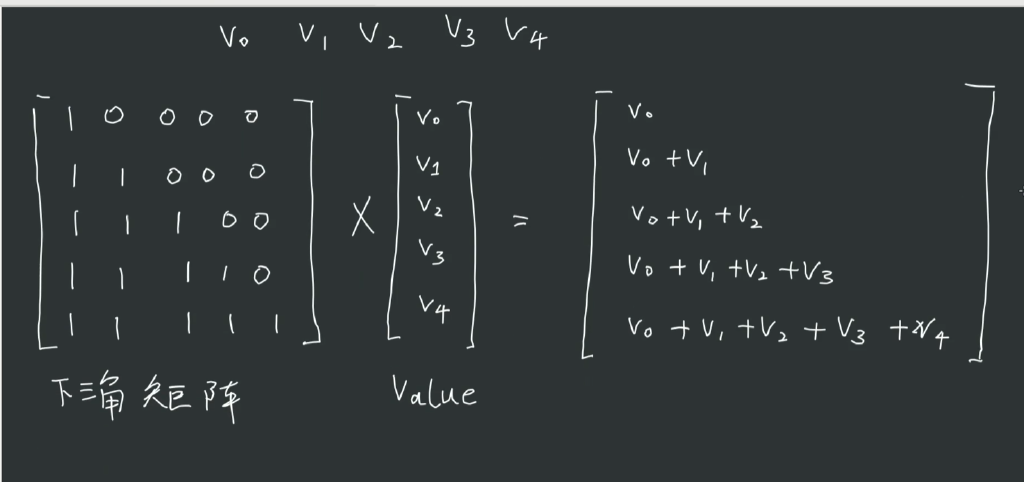 V₀ V₁ V₂ V₃ V₄
1 0 0 0 0
1 1 0 0 0
1 1 1 0 0
1 1 1 1 0
1 1 1 1 1
×
V₀
V₁
V₂
V₃
V₄
=
V₀
V₀ + V₁
V₀ + V₁ + V₂
V₀ + V₁ + V₂ + V₃
V₀ + V₁ + V₂ + V₃ + V₄
下三角矩阵
Value